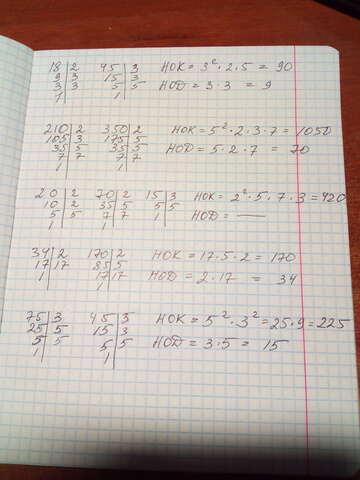 18 | 2   45 | 3   НОК = 3² · 2 · 5 = 90
9 | 3   15 | 3   НОD = 3 · 3 = 9
3 | 3   5 | 5
1 |   1 |
210 | 2   350 | 2   НОК = 5² · 2 · 3 · 7 = 1050
105 | 3   175 | 5   НОD = 5 · 2 · 7 = 70
35 | 5   35 | 5
7 | 7   7 | 7
1 |   1 |
20 | 2   70 | 2   15 | 3   НОК = 2² · 5 · 7 · 3 = 420
10 | 2   35 | 5   5 | 5   НОD = —
5 | 5   7 | 7   1 |
1 |   1 |
34 | 2   170 | 2   НОК = 17 · 5 · 2 = 170
17 | 17   85 | 5   НОD = 2 · 17 = 34
1 |   17 | 17
1 |
75 | 3   45 | 3   НОК = 5² · 3² = 25 · 9 = 225
25 | 5   15 | 3   НОD = 3 · 5 = 15
5 | 5   5 | 5
1 |   1 |